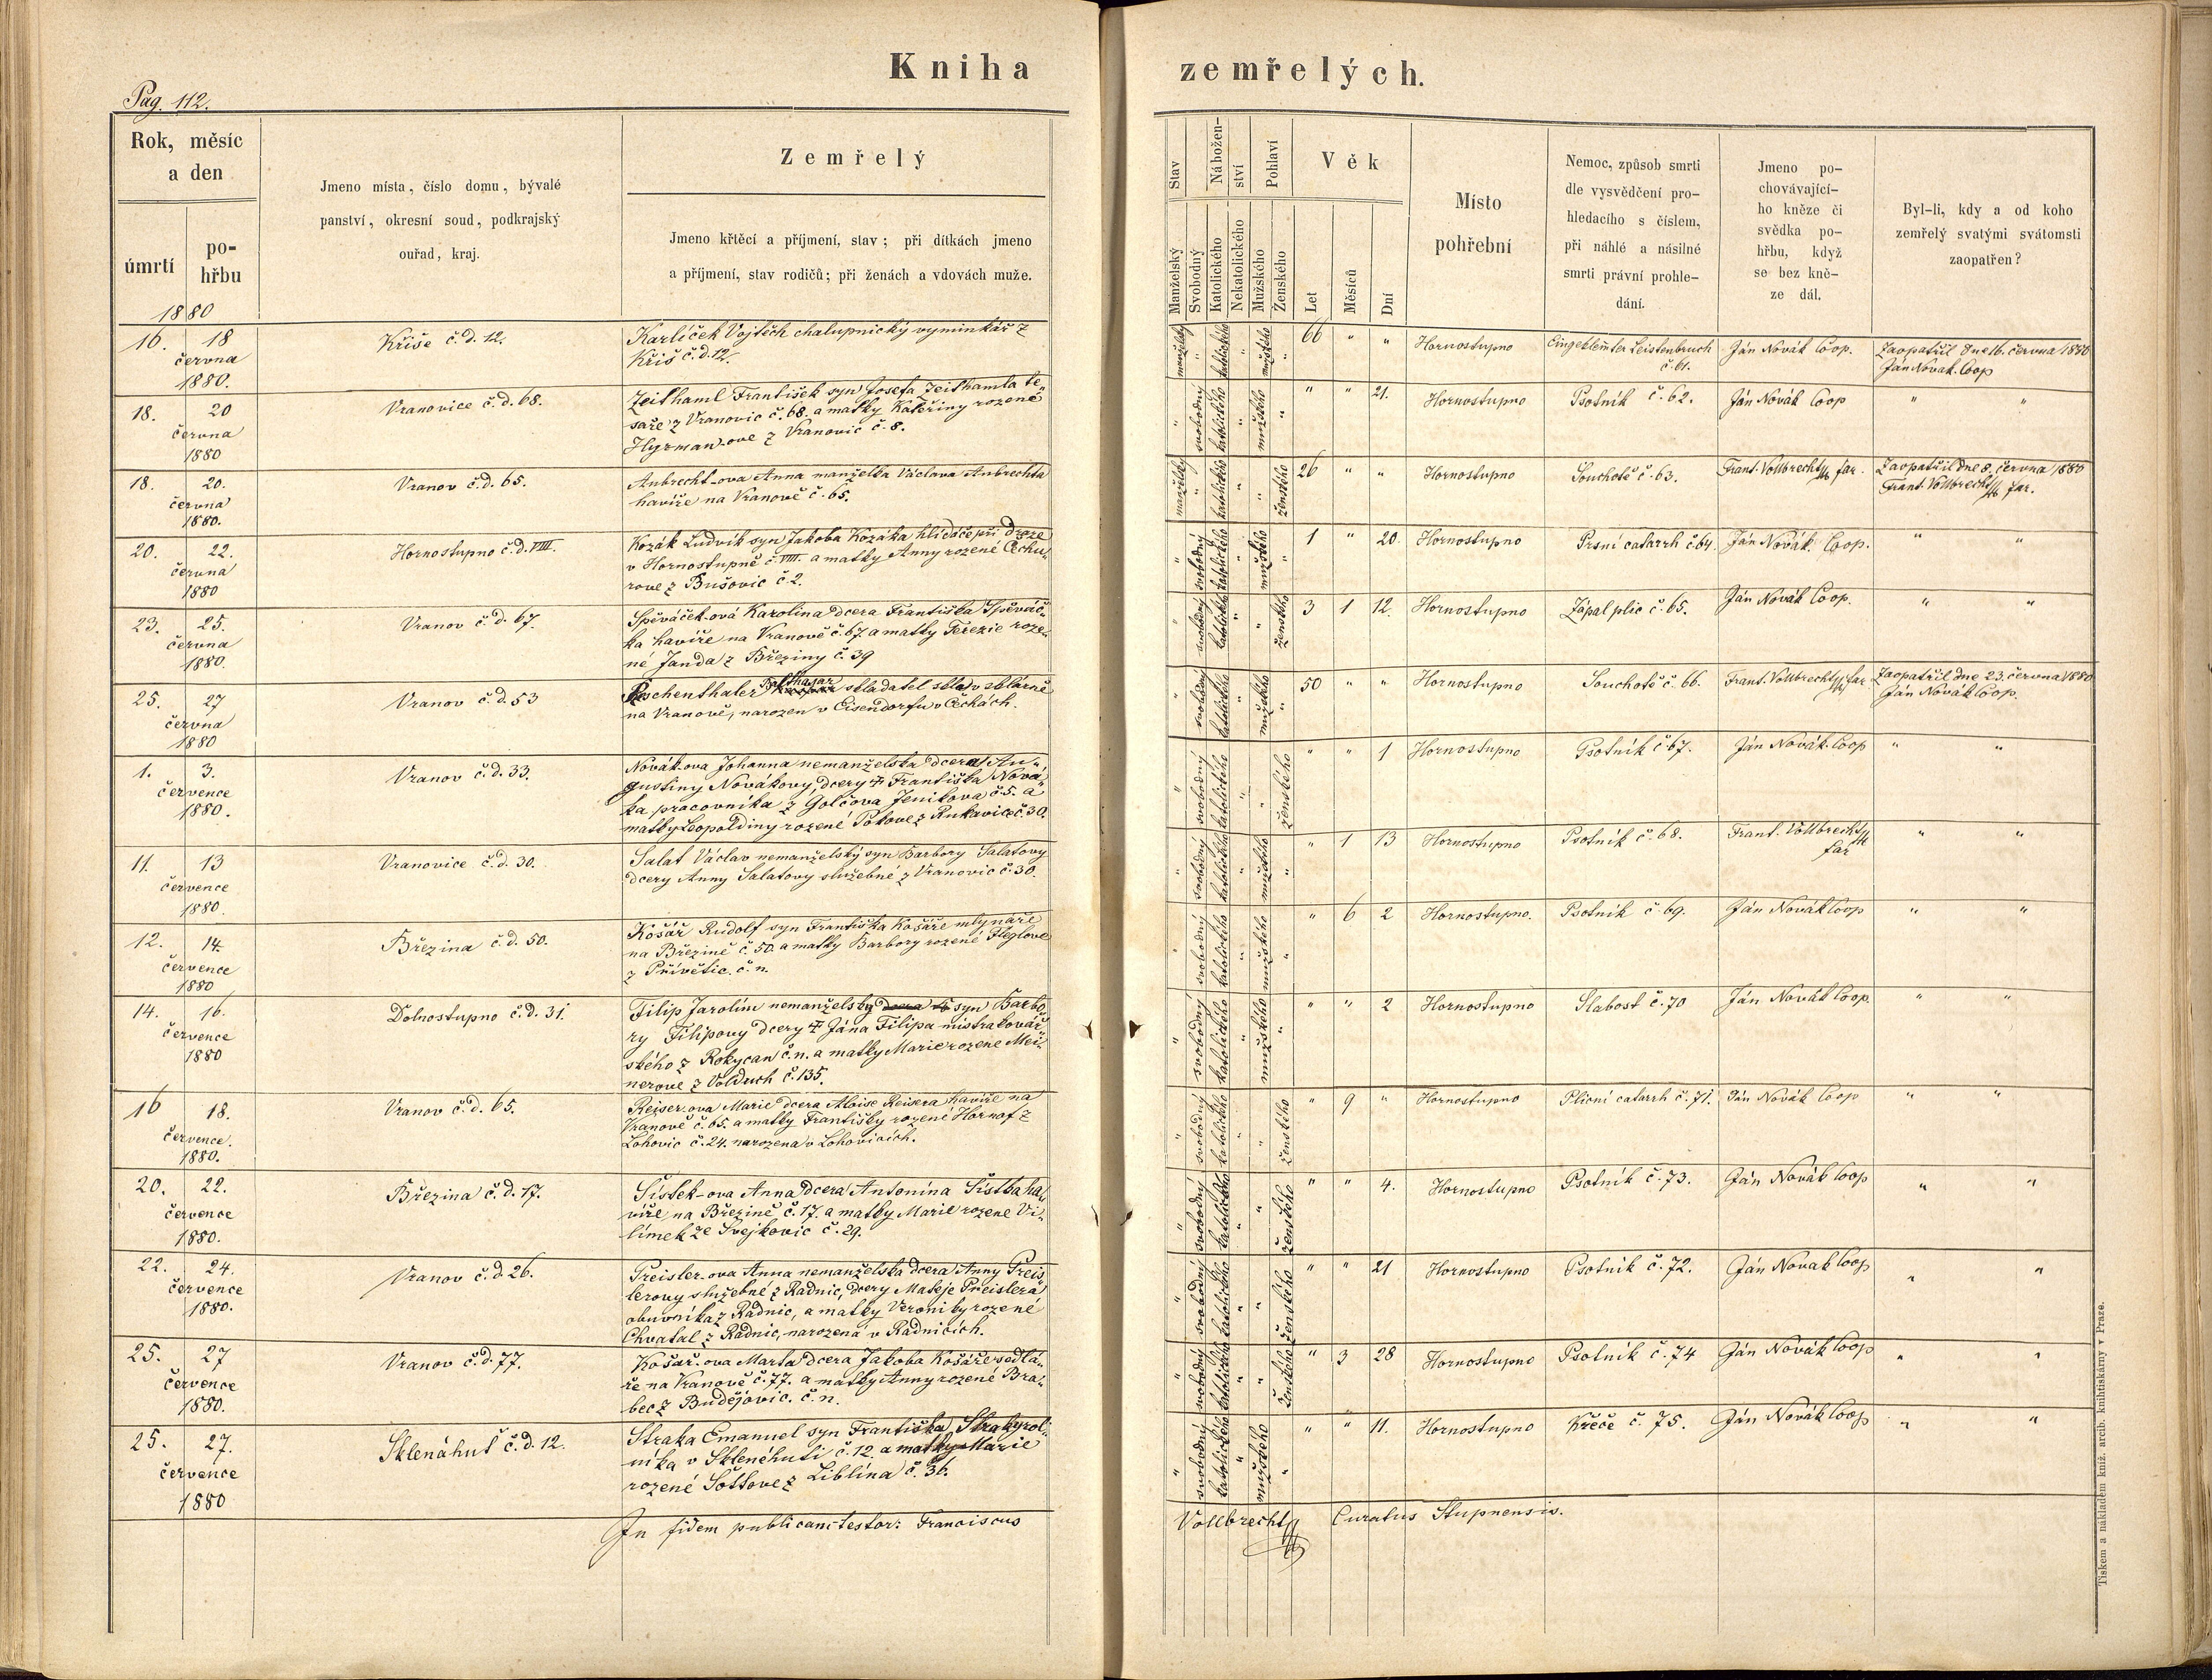 Kniha zemřelých.
Pag. 112.
Rok, měsíc
a den
úmrtí
po-
hřbu
1880
Jmeno místa, číslo domu, bývalé
panství, okresní soud, podkrajský
ouřad, kraj.
Zemřelý
Jmeno křtěcí a příjmení, stav; při dítkách jmeno
a příjmení, stav rodičů; při ženách a vdovách muže.
Stav
Nábožen-
ství
Pohlaví
Manželský
Svobodný
Katolického
Nekatolického
Mužského
Ženského
Věk
Let
Měsíců
Dní
Místo
pohřební
Nemoc, způsob smrti
dle vysvědčení pro-
hledacího s číslem,
při náhlé a násilné
smrti právní prohle-
dání.
Jmeno po-
chovávající-
ho kněze či
svědka po-
hřbu, když
se bez kně-
ze dál.
Byl-li, kdy a od koho
zemřelý svatými svátomsti
zaopatřen?
16. 18
června
1880.
Kříše č.d. 12.
Karlíček Vojtěch chalupnický vyminkář z
Kříš č.d. 12.
manželský " katolického " mužského " 66 " " Hornostupno
Eingeklemter Leistenbruch
č. 61.
Ján Novák Coop.
Zaopatřil dne 16. června 1880
Ján Novák. Coop
18. 20
června
1880
Vranovice č.d. 68.
Zeithaml František syn Josefa Zeithamla te-
saře z Vranovic č. 68. a matky Kateřiny rozené
Hyrman-ove z Vranovic č. 8.
" svobodný katolického " mužského " " " 21. Hornostupno Psotník č. 62. Ján Novák Coop " "
18. 20.
června
1880.
Vranov č.d. 65.
Aubrecht-ova Anna manželka Václava Aubrechta
havíře na Vranově č. 65.
manželský " katolického " " ženského 26 " " Hornostupno Souchotě č. 63. Frant. Vollbrecht far.
Zaopatřil dne 8. června 1880
Frant. Vollbrecht far.
20. 22.
června
1880
Hornostupno č.d. VIII.
Kozák Ludvík syn Jakoba Kozáka hlídače při draze
v Hornostupně č. VIII. a matky Anny rozené Cechu-
rove z Bušovic č. 2.
" svobodný katolického " mužského " 1 " 20. Hornostupno Prsní catarrh č. 64. Ján Novák. Coop. " "
23. 25.
června
1880.
Vranov č.d. 67.
Spěváček-ová Karolina dcera Františka Spěváč-
ka havíře na Vranově č. 67 a matky Terezie roze-
né Janda z Březiny č. 39
" svobodný katolického " " ženského 3 1 12. Hornostupno Zápal plic č. 65. Ján Novák Coop. " "
25. 27
června
1880
Vranov č.d. 53
Balthazar
skladatel skla v sklárně
na Vranově, narozen v Eisendorfu v Čechách.
" svobodný katolického " mužského " 50 " " Hornostupno Souchotě č. 66. Frant. Vollbrecht far
Zaopatřil dne 23. června 1880
Ján Novák Coop.
1. 3.
července
1880.
Vranov č.d. 33.
Novák-ova Johanna nemanželska dcera Au-
gustiny Novákovy, dcery ‡ Františka Nová-
ka pracovníka z Golčova Jenikova č. 5. a
matky Leopoldiny rozené Pokove z Rukavice č. 30.
" svobodný katolického " " ženského " " 1 Hornostupno Psotník č. 67. Ján Novák. Coop " "
11. 13
července
1880.
Vranovice č.d. 30.
Salat Václav nemanželský syn Barbory Salatovy
dcery Anny Salatovy služebné z Vranovic č. 30.
" svobodný katolického " mužského " " 1 13 Hornostupno Psotník č. 68. Frant. Vollbrecht
far " "
12. 14.
července
1880
Březina č.d. 50.
Košář Rudolf syn Františka Košáře mlynáře
na Březině č. 50. a matky Barbory rozené Heglove
z Přívětic. č. n.
" svobodný katolického " mužského " " 6 2 Hornostupno. Psotník č. 69. Ján Novák Coop " "
14. 16.
července
1880
Dolnostupno č.d. 31.
Filip Jarolím nemanželský syn Barbo-
ry Filipovy dcery ‡ Jána Filipa mistra kovář-
ského z Rokycan č. n. a matky Marie rozene Mei-
nerove z Volduch č. 135.
" svobodný katolického " mužského " " " 2 Hornostupno Slabost č. 70 Ján Novák Coop. " "
16 18.
července.
1880.
Vranov č.d. 65.
Reiser-ova Marie dcera Aloise Reisera havíře na
Vranově č. 65. a matky Františky rozené Hornof z
Lohovic č. 24. narozena v Lohovicích.
" svobodný katolického " " ženského " 9 " Hornostupno Plicní catarrh č. 71. Ján Novák Coop " "
20. 22.
července
1880.
Březina č.d. 17.
Šístek-ova Anna dcera Antonína Šístka ha-
víře, na Březině č. 17. a matky Marie rozene Vi-
límek ze Svejkovic č. 29.
" svobodný katolického " " ženského " " 4. Hornostupno Psotník č. 73. Ján Novák Coop " "
22. 24.
července
1880.
Vranov č.d. 26.
Preisler-ova Anna nemanželska dcera Anny Preis-
lerovy služebné z Radnic, dcery Matěje Preislera
obuvníka z Radnic, a matky Veroniky rozené
Chvatal z Radnic, narozena v Radnicích.
" svobodný katolického " " ženského " " 21 Hornostupno Psotník č. 72. Ján Novák Coop " "
25. 27
července
1880.
Vranov č.d. 77.
Košař-ova Marta dcera Jakoba Košáře sedlá-
ře na Vranově č. 77. a matky Anny rozené Bra-
bec z Budějovic. č. n.
" svobodný katolického " " ženského " 3 28 Hornostupno Psotník č. 74 Ján Novák Coop " "
25. 27.
července
1880
Sklenáhuť č.d. 12.
Straka Emanuel syn Františka Straky rol-
níka v Sklenéhuti č. 12. a matky Marie
rozené Šottove z Liblína č. 36.
" svobodný katolického " mužského " " " 11. Hornostupno Křeče č. 75. Ján Novák Coop " "
In fidem publicam testor: Franciscus Vollbrecht Curatus Stupnensis.
Tiskem a nákladem kníž. arcib. knihtiskárny v Praze.